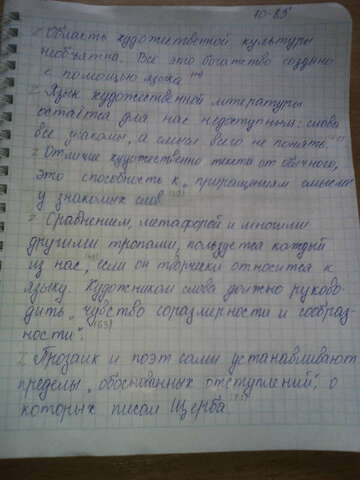 Область художественной культуры
необъятна. Всё это богатство создано
с помощью языка
Z Язык художественной литературы
остаётся для нас недоступным: слова
все знакомы, а смысл всего не понять.
Z Отличие художественно текста от обычного,
это способность к „приращениям смысла
у знакомых слов
Z Сравнением, метафорой и многими
другими тропами, пользуется каждый
из нас, если он творчески относится к
языку. Художником слова должно руково-
дить „чувство соразмерности и сообраз-
ности".
Z Прозаик и поэт сами устанавливают
пределы „обоснованных отступлений", о
которых писал Щерба